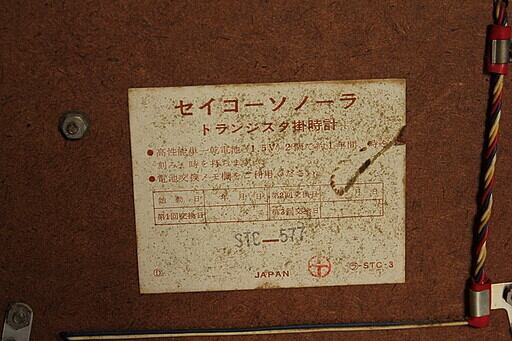 セイコーソノーラ
トランジスタ掛時計
●高性能単一乾電池(1.5V)2個で約1年間、時を
刻み、時を持ちます。
●電池交換メモ欄をご利用ください。
始動日 年月日 第2回交換日 年月日
第1回交換日 第3回交換日
STC-577
D JAPAN -STC-3